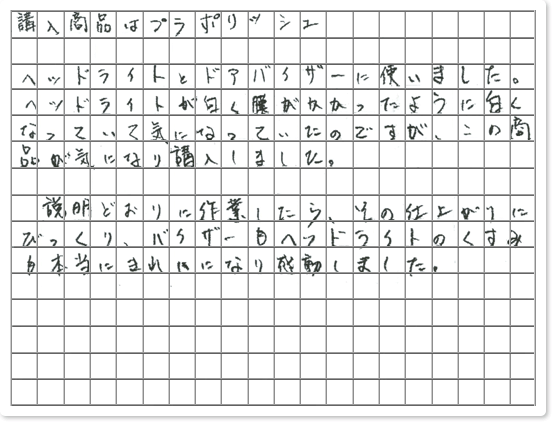 講入商品はプラポリッシュ
ヘッドライトとドアバイザーに使いました。
ヘッドライトが白く膜がかかったように白く
なっていて気になっていたのですが、この商
品が気になり講入しました。
説明どおりに作業したら、その仕上がりに
びっくり、バイザーもヘッドライトのくすみ
も本当にきれいになり感動しました。